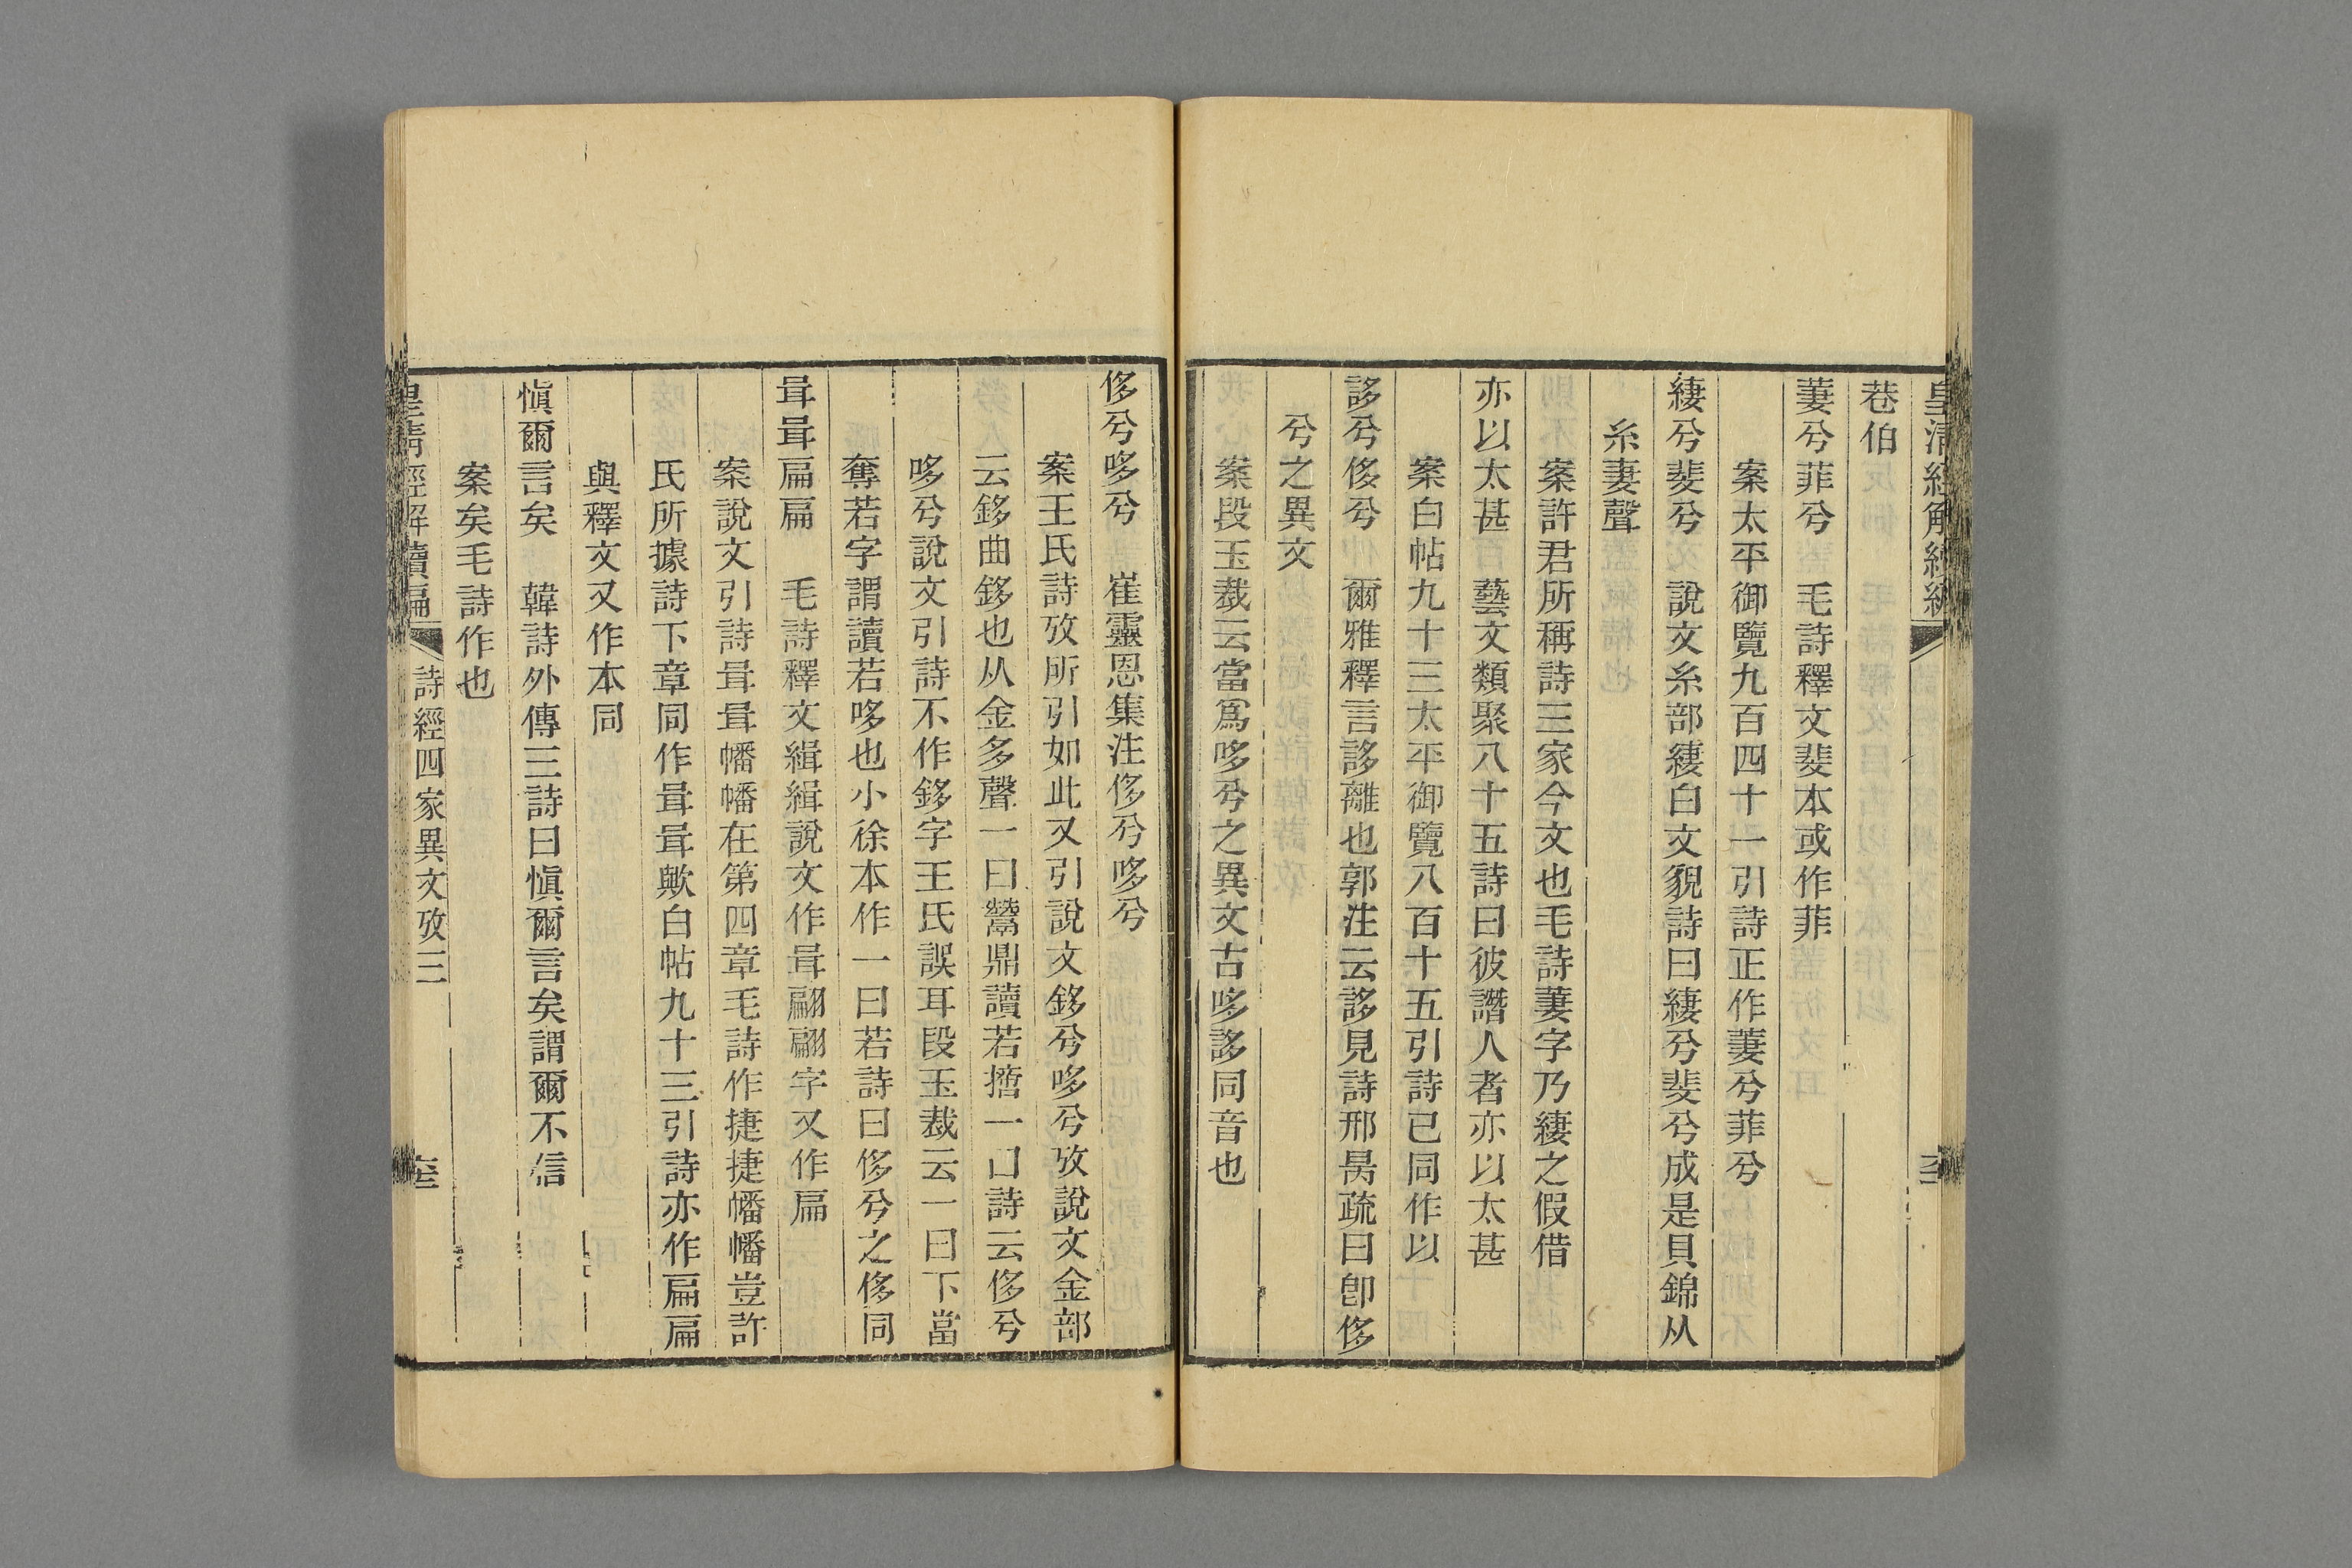 巷伯
萋兮菲兮　毛詩釋文斐本或作菲
案太平御覽九百四十一引詩正作萋兮菲兮
緀兮斐兮　說文糸部緀白文貌詩曰緀兮斐兮成是貝錦从
糸妻聲
案許君所稱詩三家今文也毛詩萋字乃緀之假借
亦以太甚　藝文類聚八十五詩曰彼譖人者亦以太甚
案白帖九十三太平御覽八百十五引詩已同作以
誃兮侈兮　爾雅釋言誃離也郭注云誃見詩邢昺疏曰卽侈
兮之異文
案段玉裁云當爲哆兮之異文古哆誃同音也
侈兮哆兮　崔靈恩集注侈兮哆兮
案王氏詩攷所引如此又引說文鉹兮哆兮攷說文金部
云鉹曲鉹也从金多聲一曰鬵鼎讀若搚一曰詩云侈兮
哆兮說文引詩不作鉹字王氏誤耳段玉裁云一曰下當
奪若字謂讀若哆也小徐本作一曰若詩曰侈兮之侈同
咠咠扁扁　毛詩釋文緝緝說文作咠翩翩字又作扁
案說文引詩咠咠幡幡在第四章毛詩作捷捷幡幡豈許
氏所據詩下章同作咠咠歟白帖九十三引詩亦作扁扁
與釋文又作本同
愼爾言矣　韓詩外傳三詩曰愼爾言矣謂爾不信
案矣毛詩作也
皇淸經解續編　詩經四家異文攷三